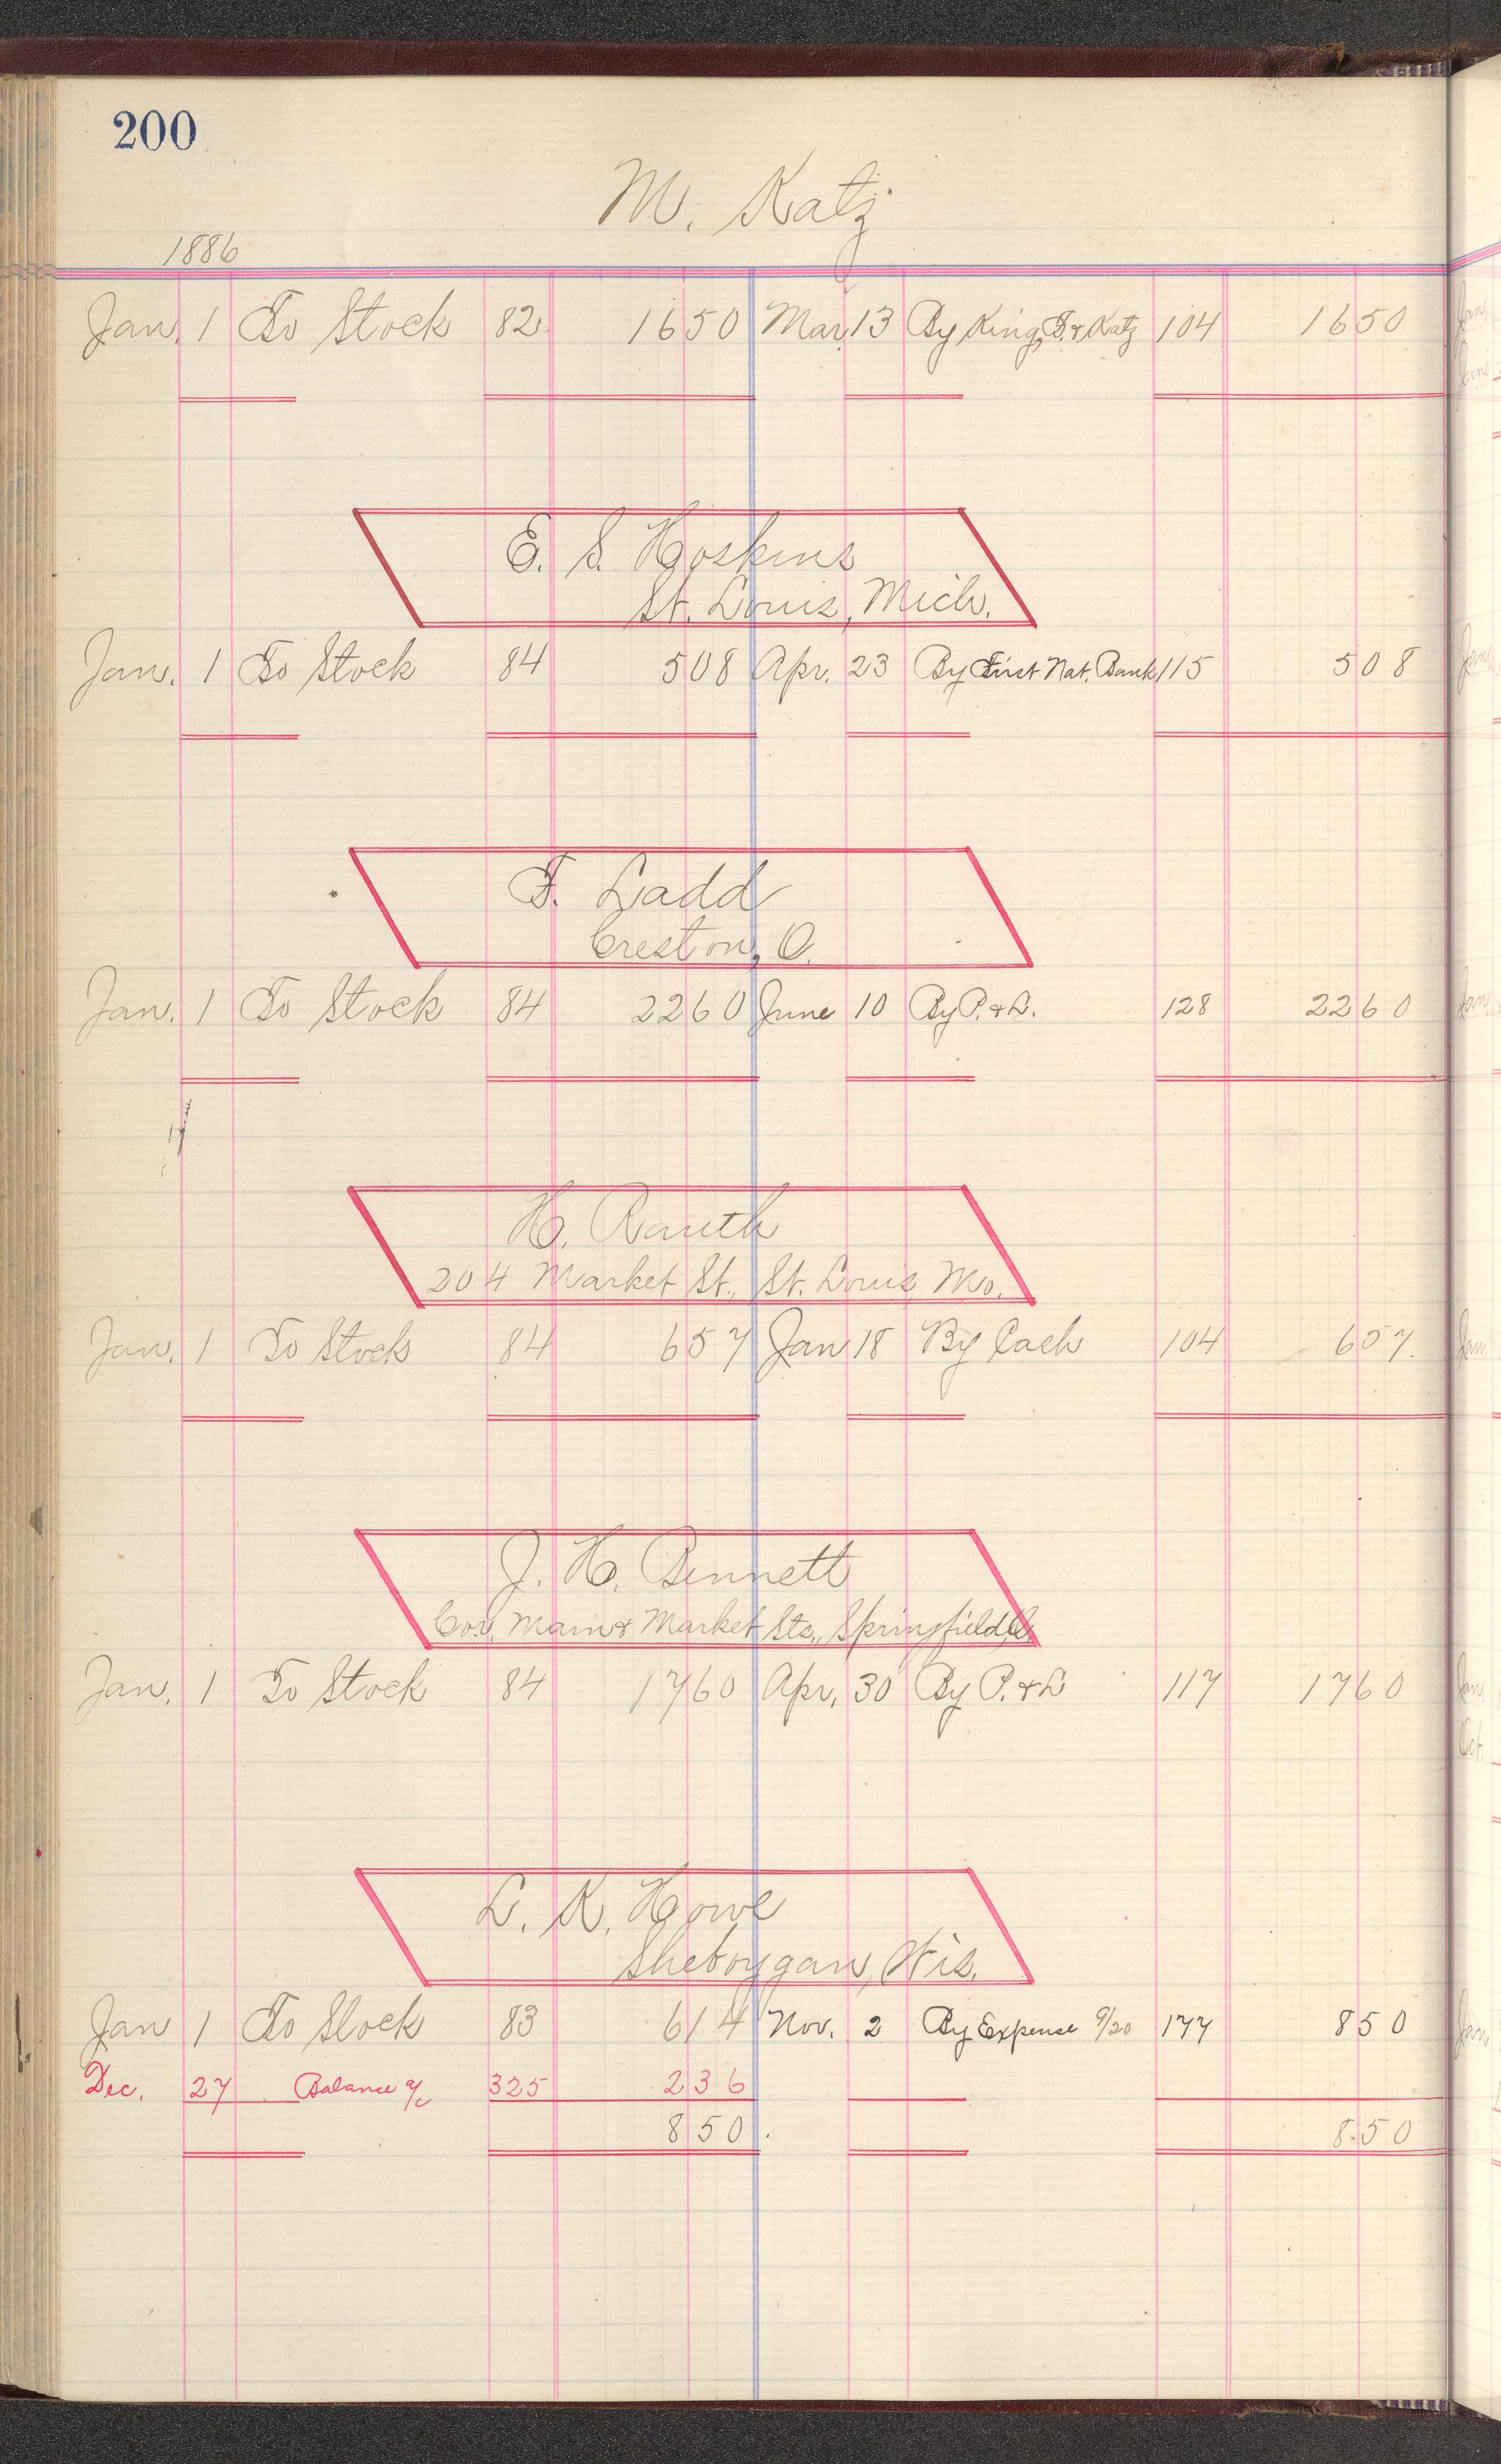 200
M. Katz
1886
Jan. 1 To Stock 82 16 50 Mar. 13 By King, F. & Katz 104 16 50
E. S. Hoskins
St. Louis, Mich.
Jan. 1 To Stock 84 5 08 Apr. 23 By First Nat. Bank 115 5 08
F. Ladd
Creston, O.
Jan. 1 To Stock 84 22 60 June 10 By P. & L. 128 22 60
H. Rauth
204 Market St., St. Louis Mo.
Jan. 1 To Stock 84 6 57 Jan 18 By Cash 104 6 57.
J. H. Bennett
Cor. Main & Market Sts., Springfield, O.
Jan. 1 To Stock 84 17 60 Apr. 30 By P. & L 117 17 60
L. K. Howe
Sheboygan, Wis.
Jan 1 To Stock 83 6 14 Nov. 2 By Expense 9/20 177 8 50
Dec. 27 Balance a/c 325 2 36
8 50 8.50